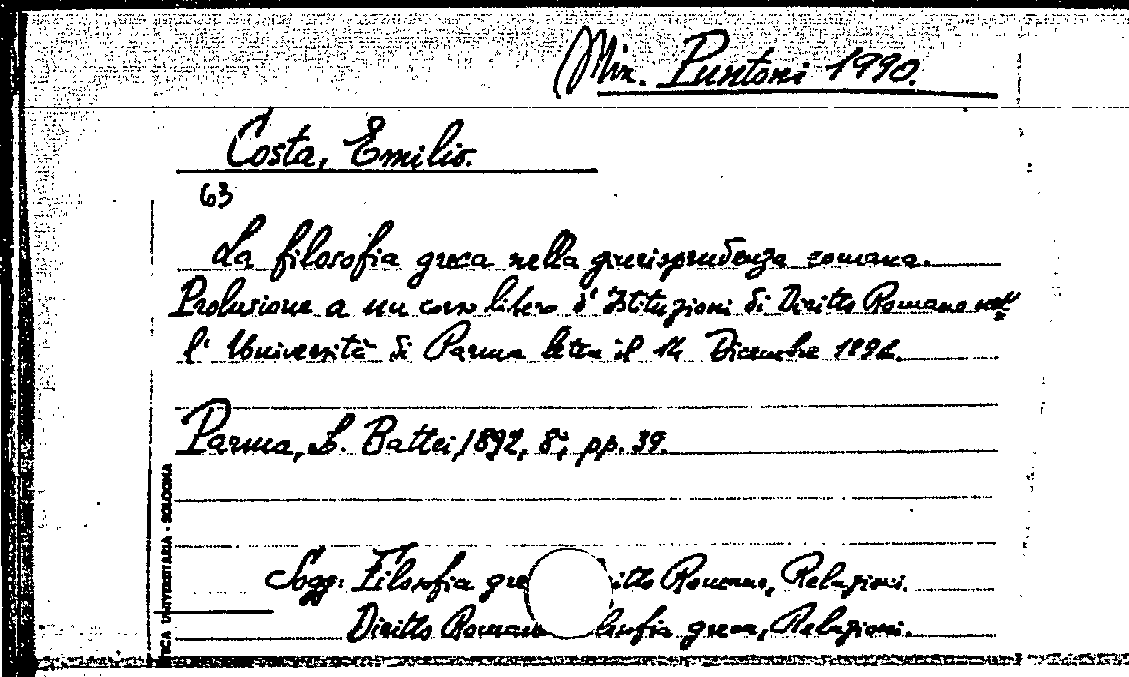 Min. Puntoni 1990.
Costa, Emilio.
63
La filosofia greca nella giurisprudenza romana.
Prolusione a un corso libero d'Istituzioni di Diritto Romano nel-
l'Università di Parma letta il 14 Dicembre 1891.
Parma, L. Battei, 1892, 8°, pp. 39.
Sogg: Filosofia gre itto Romano, Relazioni.
Diritto Romano losofia greca, Relazioni.
TICA UNIVERSITARIA - BOLOGNA